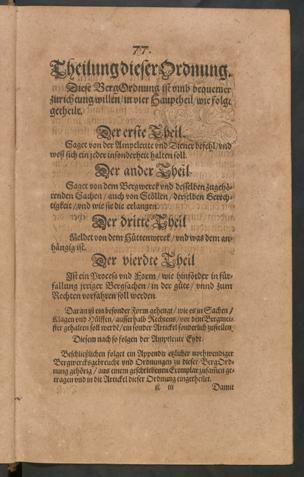 77.
Theilung dieser Ordnung.
Diese BergOrdnung ist vmb bequemer
zurichtung willen / in vier Haupttheil / wie folgt
getheilt.
Der erste Theil.
Saget von der Amptleute vnd Diener befehl / vnd
weß sich ein jeder insonderheit halten soll.
Der ander Theil
Saget von dem Bergwerck vnd desselben zugehö-
renden Sachen / auch von Stöllen / derselben Gerech-
tigkeit / vnd wie sie die erlangen.
Der dritte Theil
Meldet von dem Hüttenwerck / vnd was dem an-
hängig ist.
Der vierdte Theil
Ist ein Proceß vnd Form / wie hinförder in für-
fallung jrriger Bergsachen / in der güte / vnnd zum
Rechten verfahren soll werden.
Daran ist ein besonder Form gehengt / wie es in Sachen /
Klagen vnd Hülffen / ausserhalb Rechtens / vor dem Bergmei-
ster gehalten soll werdē / ein sonder Artickel sonderlich zustellen /
Diesem nach so folgen der Amptleute Eydt.
Beschließlichen folget ein Appendix etzlicher nothwendiger
Bergwercksgebreuche vnd Ordnungen zu dieser BergOrd-
nung gehörig / aus einem geschriebenen Exemplar zusamen ge-
tragen vnd in die Artickel dieser Ordnung eingetheilet.
Damit